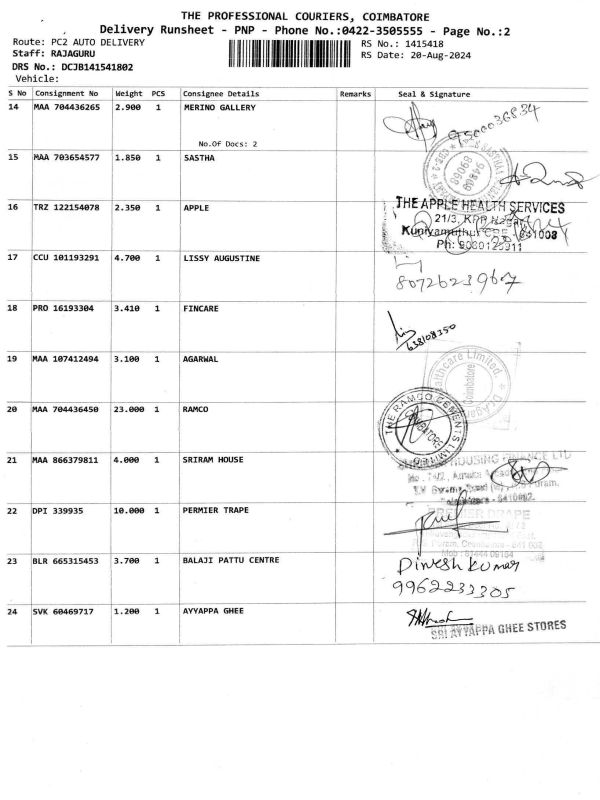 THE PROFESSIONAL COURIERS, COIMBATORE
Delivery Runsheet - PNP - Phone No.:0422-3505555 - Page No.:2
Route: PC2 AUTO DELIVERY
RS No.: 1415418
Staff: RAJAGURU
RS Date: 20-Aug-2024
DRS No.: DCJB141541802
Vehicle:
S No Consignment No Weight PCS Consignee Details Remarks Seal & Signature
14 MAA 704436265 2.900 1 MERINO GALLERY
9500036834
No.Of Docs: 2
15 MAA 703654577 1.850 1 SASTHA
16 TRZ 122154078 2.350 1 APPLE
THE APPLE HEALTH SERVICES
21/3, KPR
Kuniyamuthur CBE 641008
Ph:
17 CCU 101193291 4.700 1 LISSY AUGUSTINE
80726239607
18 PRO 16193304 3.410 1 FINCARE
638108350
19 MAA 107412494 3.100 1 AGARWAL
Healthcare Limited.
Coimbatore
20 MAA 704436450 23.000 1 RAMCO
THE RAMCO CEMENTS LIMITED
COIMBATORE
21 MAA 866379811 4.000 1 SRIRAM HOUSE
HOUSING FINANCE LTD
22 DPI 339935 10.000 1 PERMIER TRAPE
PREMIER DRAPE
23 BLR 665315453 3.700 1 BALAJI PATTU CENTRE
Dinesh kumar
9962233305
24 SVK 60469717 1.200 1 AYYAPPA GHEE
SRI AYYAPPA GHEE STORES